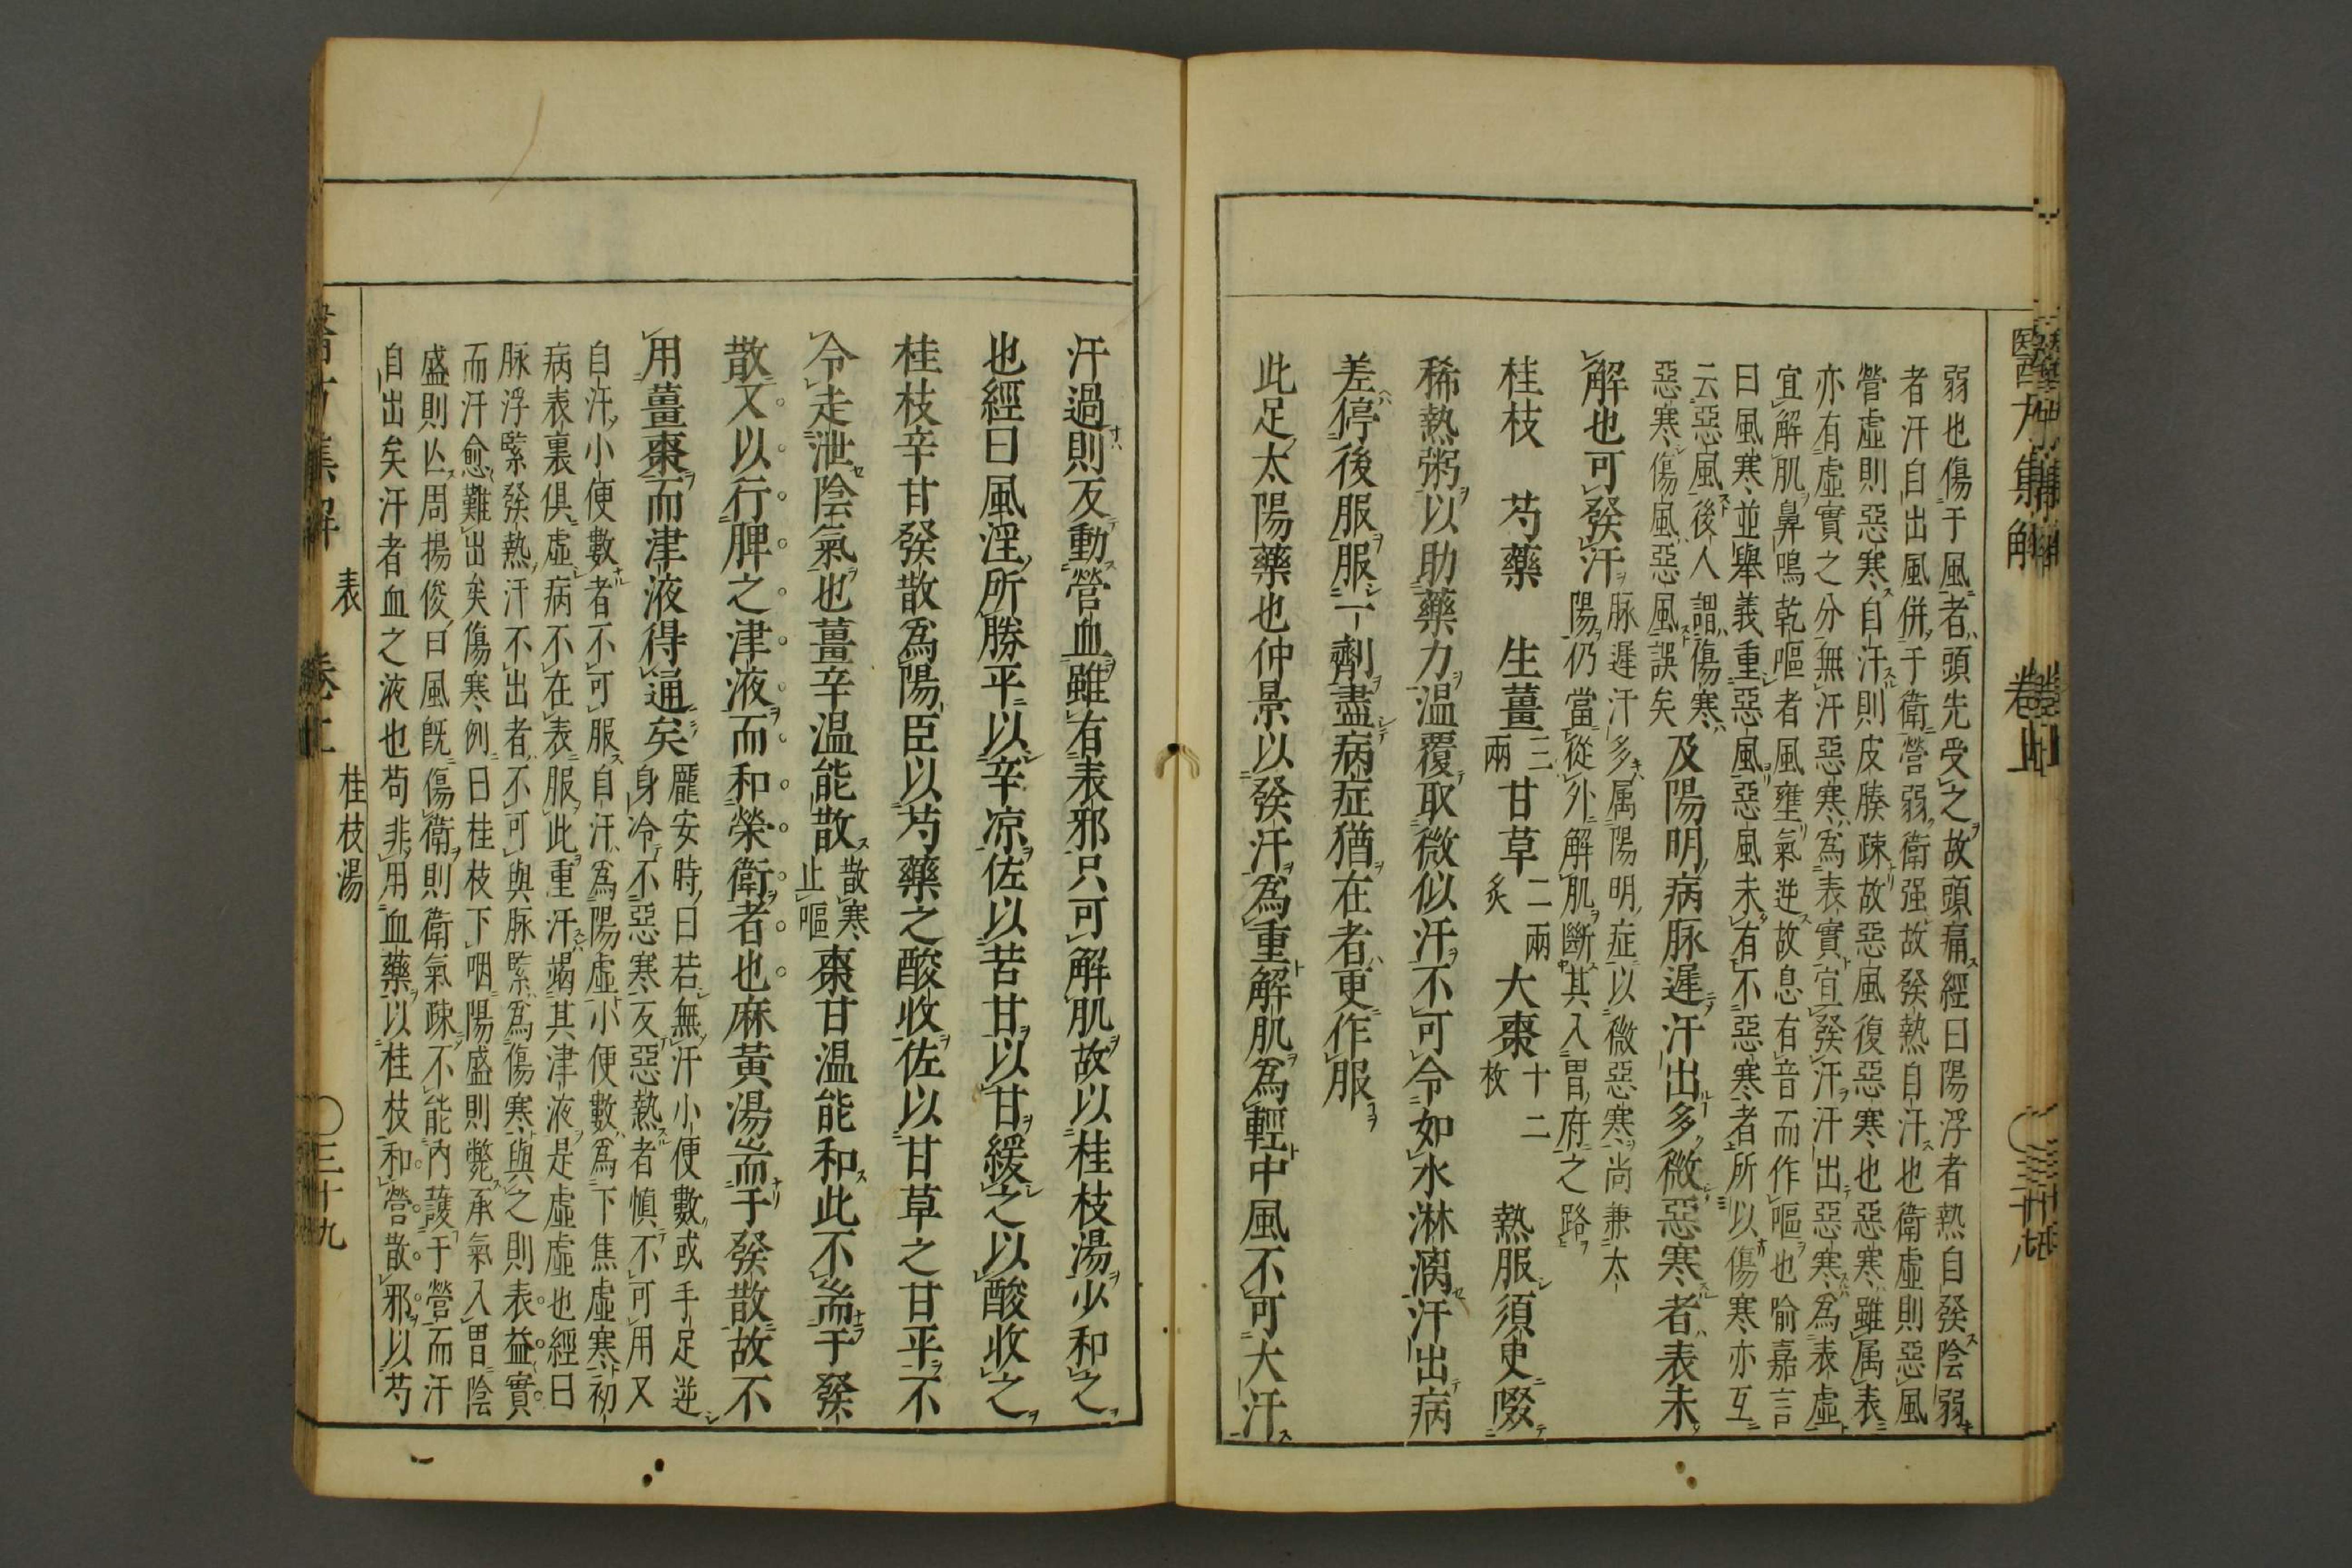 弱也傷于風者頭先受之故頭痛經曰陽浮者熱自發陰弱
者汗自出風併于衛營弱衛强故發熱自汗也衛虛則惡風
營虛則惡寒自汗則皮腠疎故惡風復惡寒也惡寒雖属表
亦有虛實之分無汗惡寒爲表實宜發汗汗出惡寒爲表虛
宜解肌鼻鳴乾嘔者風壅氣逆故息有音而作嘔也喻嘉言
曰風寒並舉義重惡風惡風未有不惡寒者所以傷寒亦互
云惡風後人謂傷寒
惡寒傷風惡風誤矣
及陽明病脉遲汗出多微惡寒者表未
解也可發汗
脉遲汗多属陽明症以微惡寒尚兼太
陽仍當從外解肌斷其入胃府之路
桂枝 芍藥 生薑三兩 甘草二兩炙 大棗十二枚 熱服須臾啜
稀熱粥以助藥力温覆取微似汗不可令如水淋漓汗出病
差停後服服一劑盡病症猶在者更作服
此足太陽藥也仲景以發汗爲重解肌爲輕中風不可大汗
汗過則反動營血雖有表邪只可解肌故以桂枝湯少和之
也經曰風淫所勝平以辛凉佐以苦甘以甘緩之以酸收之
桂枝辛甘發散爲陽臣以芍藥之酸收佐以甘草之甘平不
令走泄陰氣也薑辛温能散散寒止嘔棗甘温能和此不耑于發
散又以行脾之津液而和榮衛者也麻黃湯耑于發散故不
用薑棗而津液得通矣
龐安時曰若無汗小便數或手足逆
身冷不惡寒反惡熱者慎不可用又
自汗小便數者不可服自汗爲陽虛小便數爲下焦虛寒初
病表裏俱虛病不在表服此重汗竭其津液是虛虛也經曰
脉浮緊發熱汗不出者不可與脉緊爲傷寒與之則表益實
而汗愈難出矣傷寒例曰桂枝下咽陽盛則斃承氣入胃陰
盛則亾周揚俊曰風既傷衛則衛氣疎不能內護于營而汗
自出矣汗者血之液也苟非用血藥以桂枝和營散邪以芍
醫方集解 表 卷上 桂枝湯 〇三十九